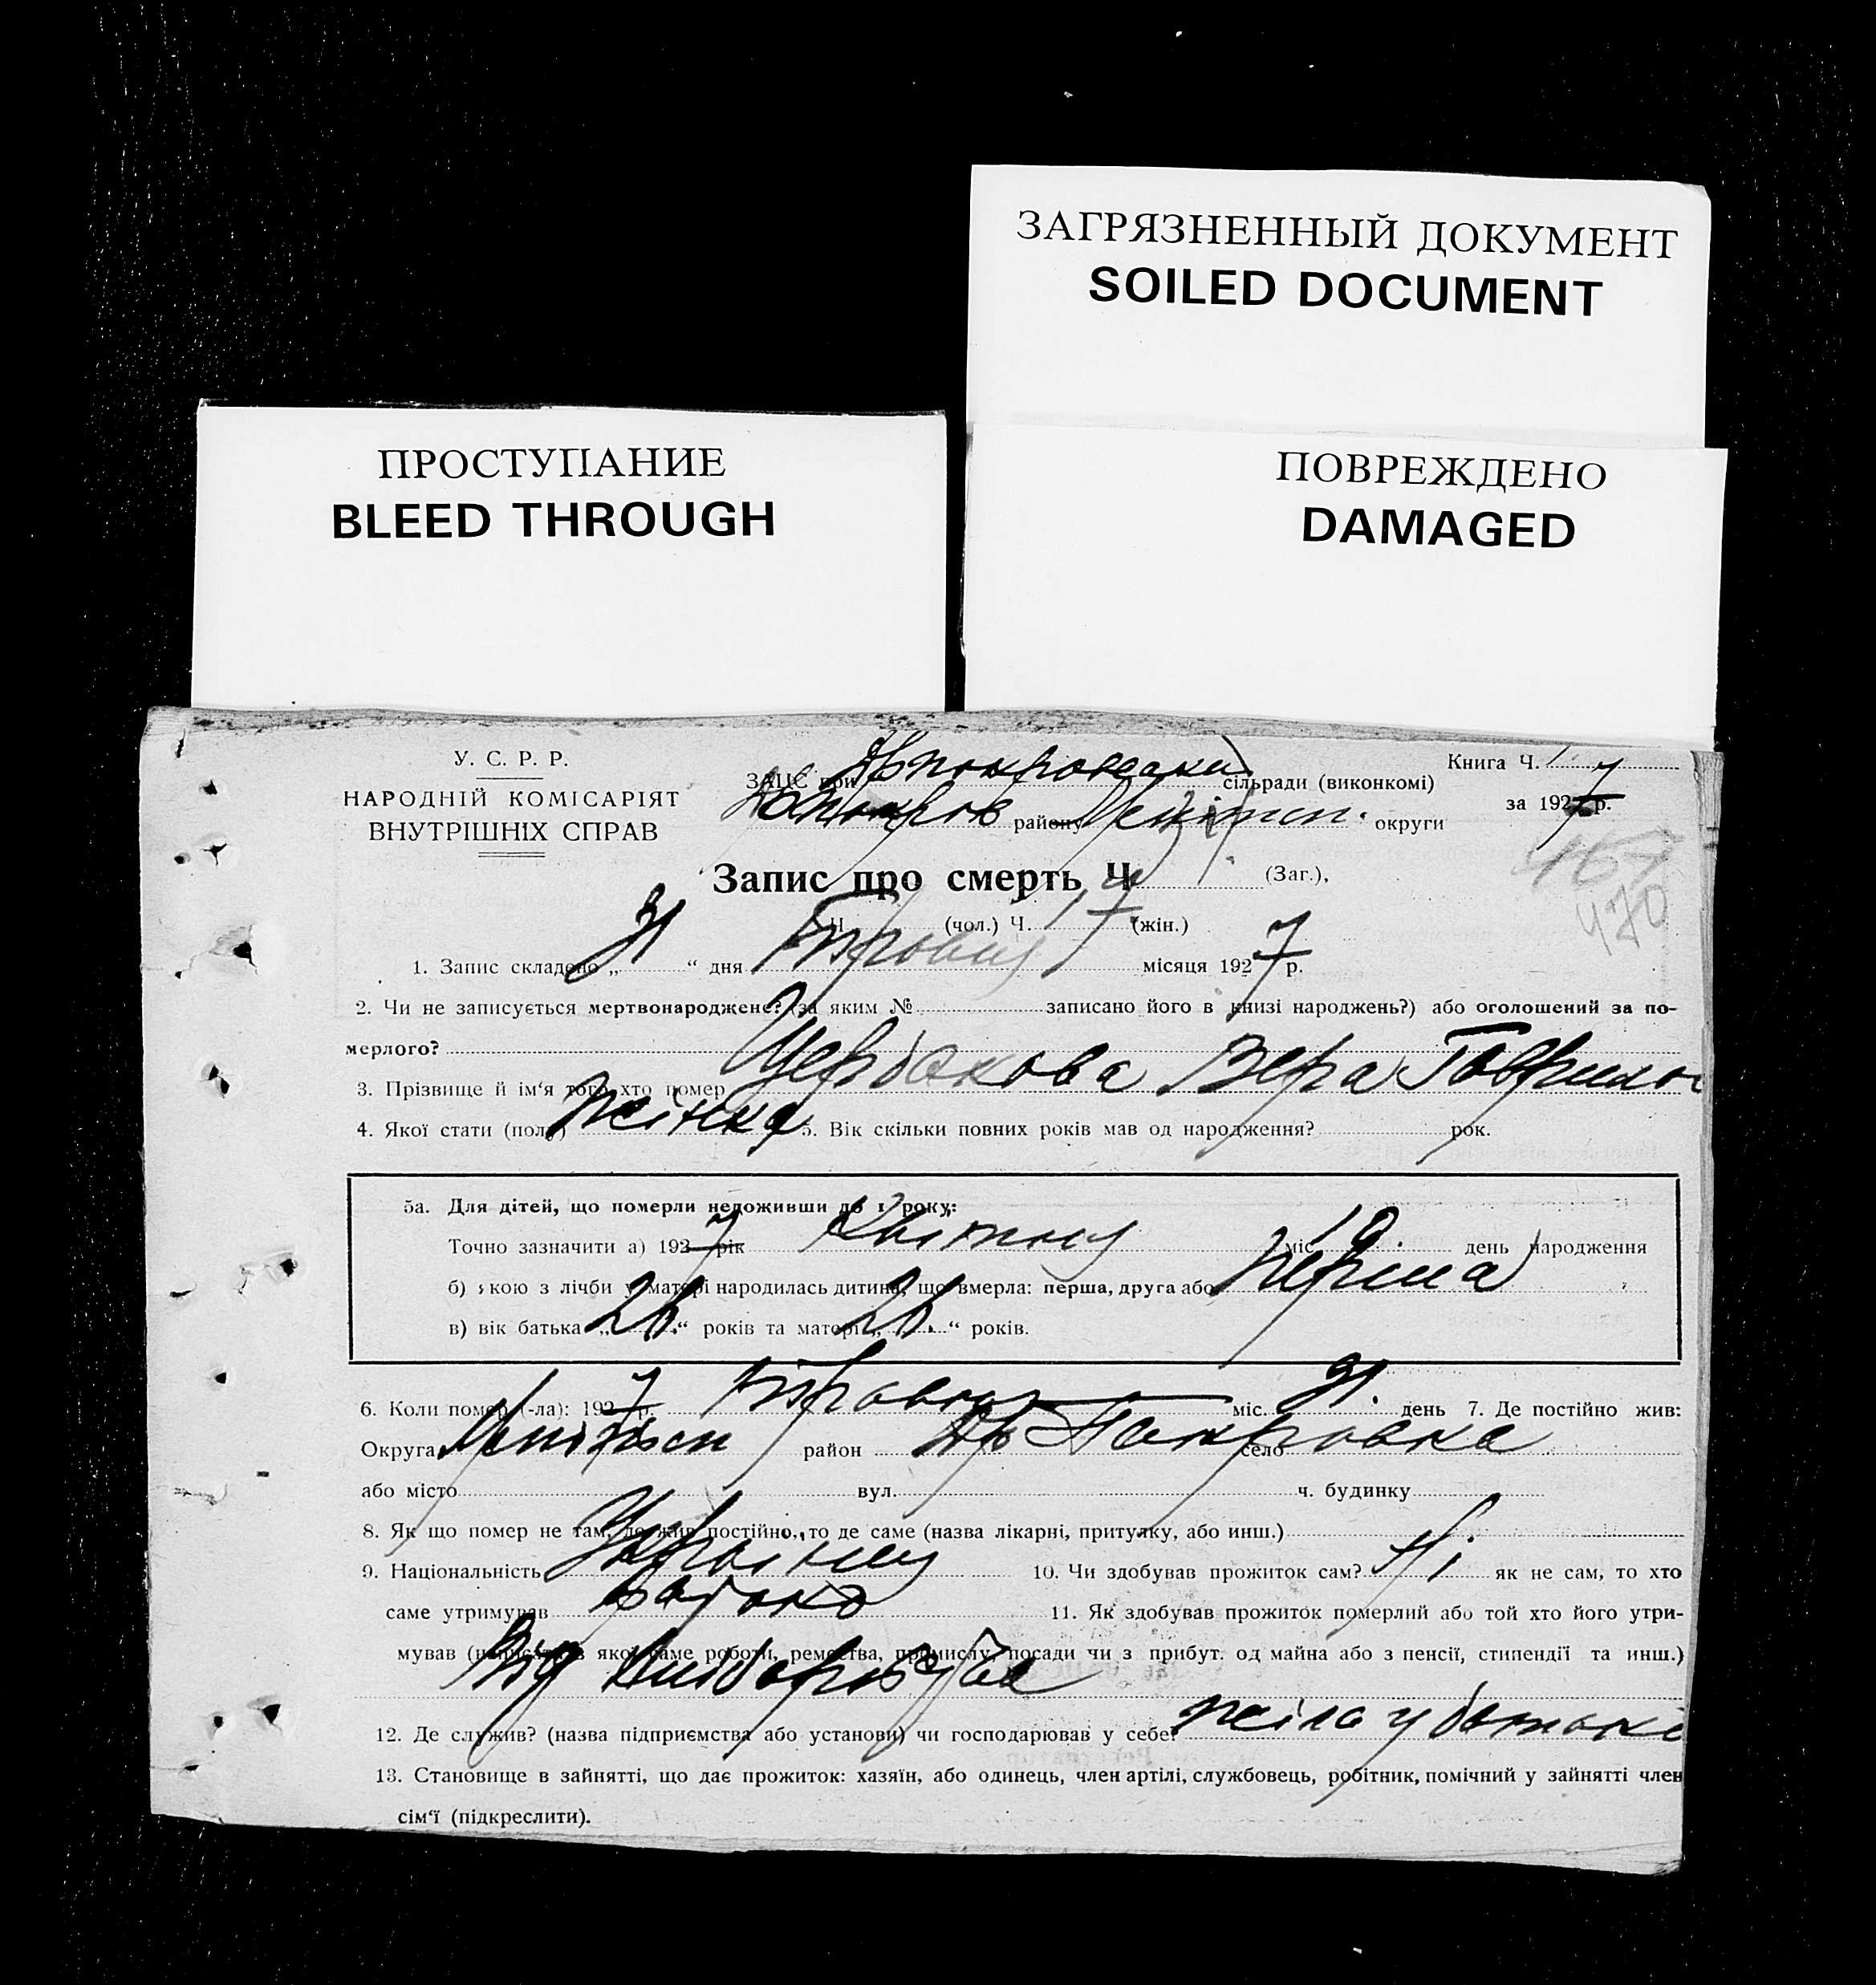 ЗАГРЯЗНЕННЫЙ ДОКУМЕНТ
SOILED DOCUMENT
ПРОСТУПАНИЕ
BLEED THROUGH
ПОВРЕЖДЕНО
DAMAGED
У. С. Р. Р.
НАРОДНІЙ КОМІСАРІЯТ
ВНУТРІШНІХ СПРАВ
ЗАЦС при сільради (виконкомі)
району округи
Книга Ч. 1
за 1927 р.
467
470
Запис про смерть Ч (Заг.),
Ч. (чол.) Ч. 17 (жін.)
1. Запис складено „31“ дня Травня місяця 1927 р.
2. Чи не записується мертвонароджене? (за яким № записано його в книзі народжень?) або оголошений за по-
мерлого?
3. Прізвище й ім‘я того, хто помер Щербакова Вера Гаврилов
4. Якої стати (полу) жінка 5. Вік скільки повних років мав од народження? рок.
5а. Для дітей, що померли недоживши до 1 року:
Точно зазначити а) 1927 рік Квітню міс. день народження
б) якою з лічби у матері народилась дитина, що вмерла: перша, друга або перша
в) вік батька „26“ років та матері „26“ років.
6. Коли помер (-ла): 1927 р. Травня міс. 31 день 7. Де постійно жив:
Округа район Покровка село
або місто вул. ч. будинку
8. Як що помер не там, де жив постійно, то де саме (назва лікарні, притулку, або инш.)
9. Національність 10. Чи здобував прожиток сам? Ні як не сам, то хто
саме утримував батько 11. Як здобував прожиток померлий або той хто його утри-
мував (написати з якої саме роботи, ремества, промислу, посади чи з прибут. од майна або з пенсії, стипендії та инш.)
Від
12. Де служив? (назва підприємства або установи) чи господарював у себе? жіла у батьке
13. Становище в зайнятті, що дає прожиток: хазяїн, або одинець, член артілі, службовець, робітник, помічний у зайнятті член
сім‘ї (підкреслити).